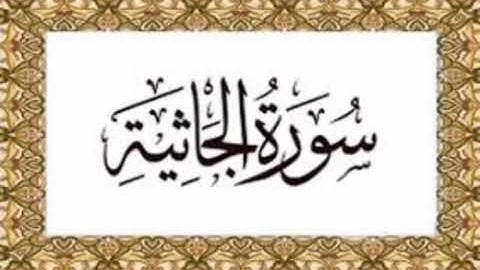 سُورَةُ الْجَاثِيَةِ